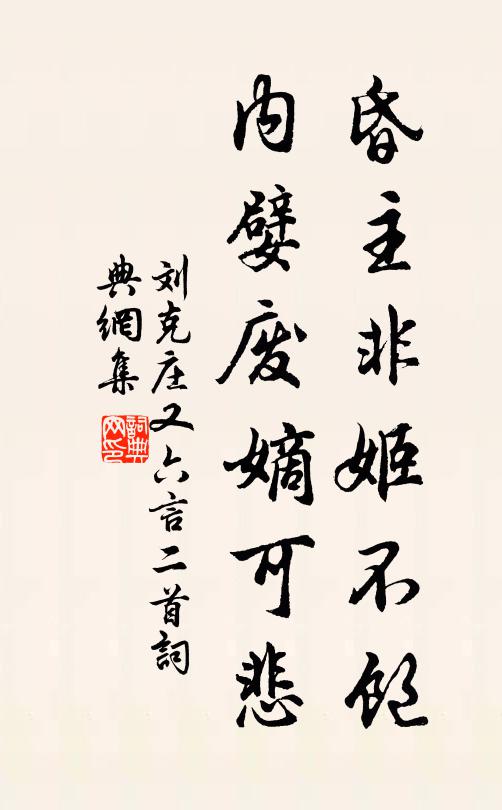 昏主非姬不饱
内嬖废嫡可悲
刘克庄又六言二首詞
典網集
詞典网印